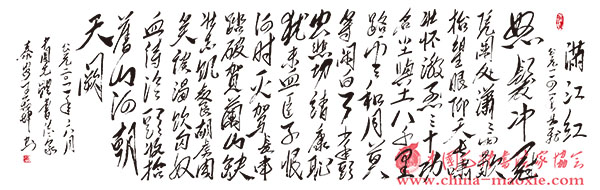 满江红
怒髮冲冠
凭阑处潇潇雨歇
抬望眼仰天长啸
壮怀激烈三十功
名尘与土八千里
路云和月莫
等闲白了少年头
空悲切靖康耻
犹未雪臣子恨
何时灭驾长车
踏破贺兰山缺
壮志饥餐胡虏肉
笑谈渴饮匈奴
血待从头收拾
舊山河朝
天阙
公元二〇一一年六月
中国毛体书法家
www.china-maoxie.com